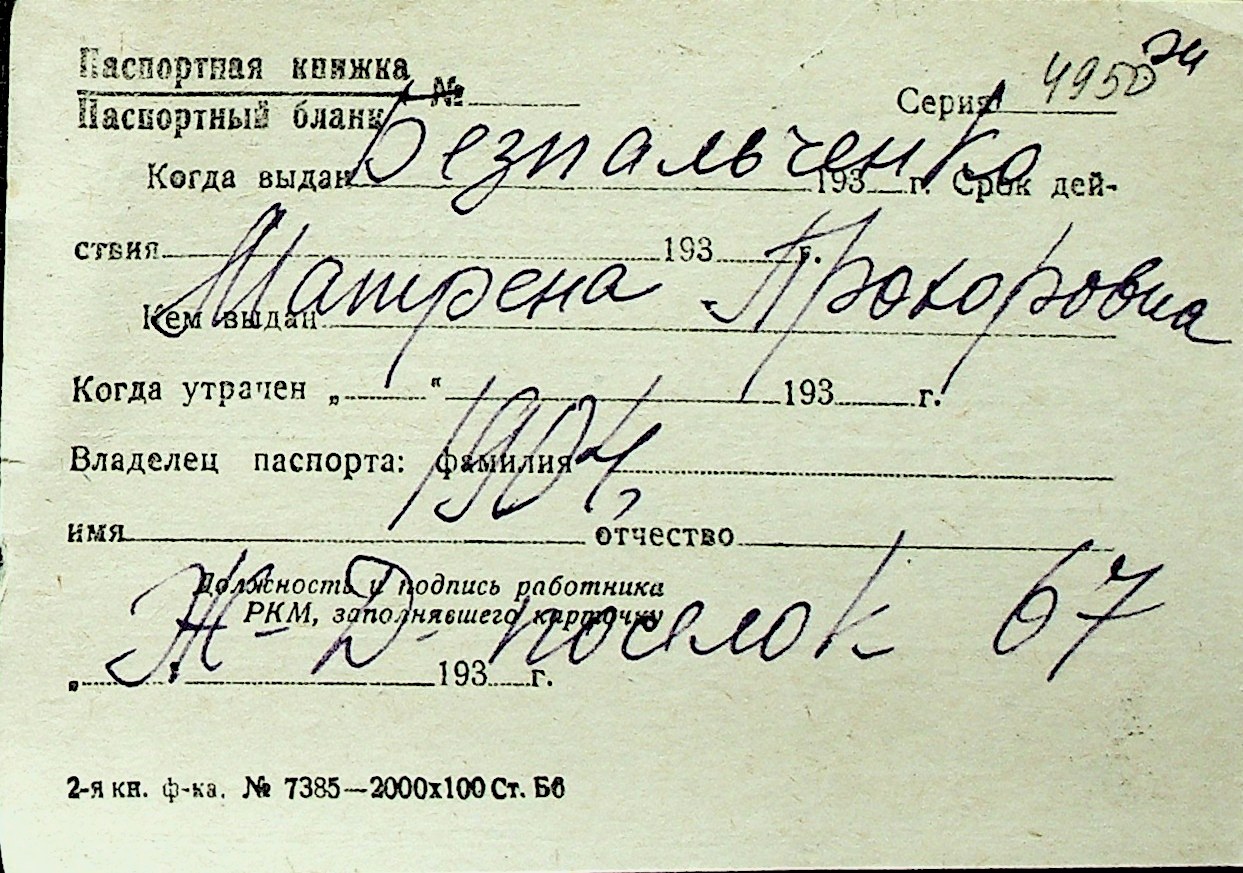 Паспортная книжка
Паспортный бланк № Серия 4950 эи
Безпальченко
Когда выдан 193 г. Срок дей-
ствия 193 г.
Матрена Прохоровна
Кем выдан
Когда утрачен „ “ 193 г.
1904,
Владелец паспорта: фамилия
имя отчество
Должность и подпись работника
РКМ, заполнявшего карточку
Ж-Д- поселок 67
„ “ 193 г.
2-я кн. ф-ка. № 7385—2000х100 Ст. Бб